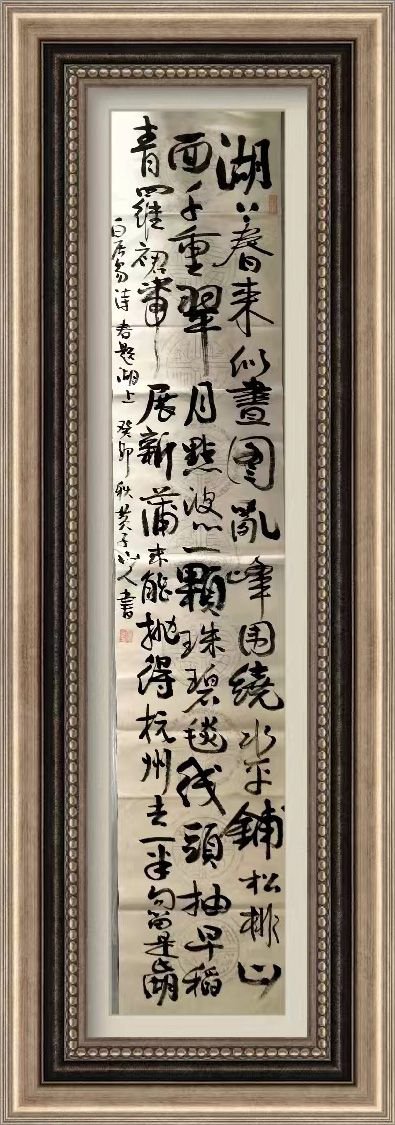 湖上春来似畫图亂峰围繞水平鋪松排山
面千重翠月點波心一顆珠碧毯线頭抽早稻
青羅裙帶展新蒲未能抛得杭州去一半勾留是此湖
白居易诗春题湖上 癸卯秋山人書